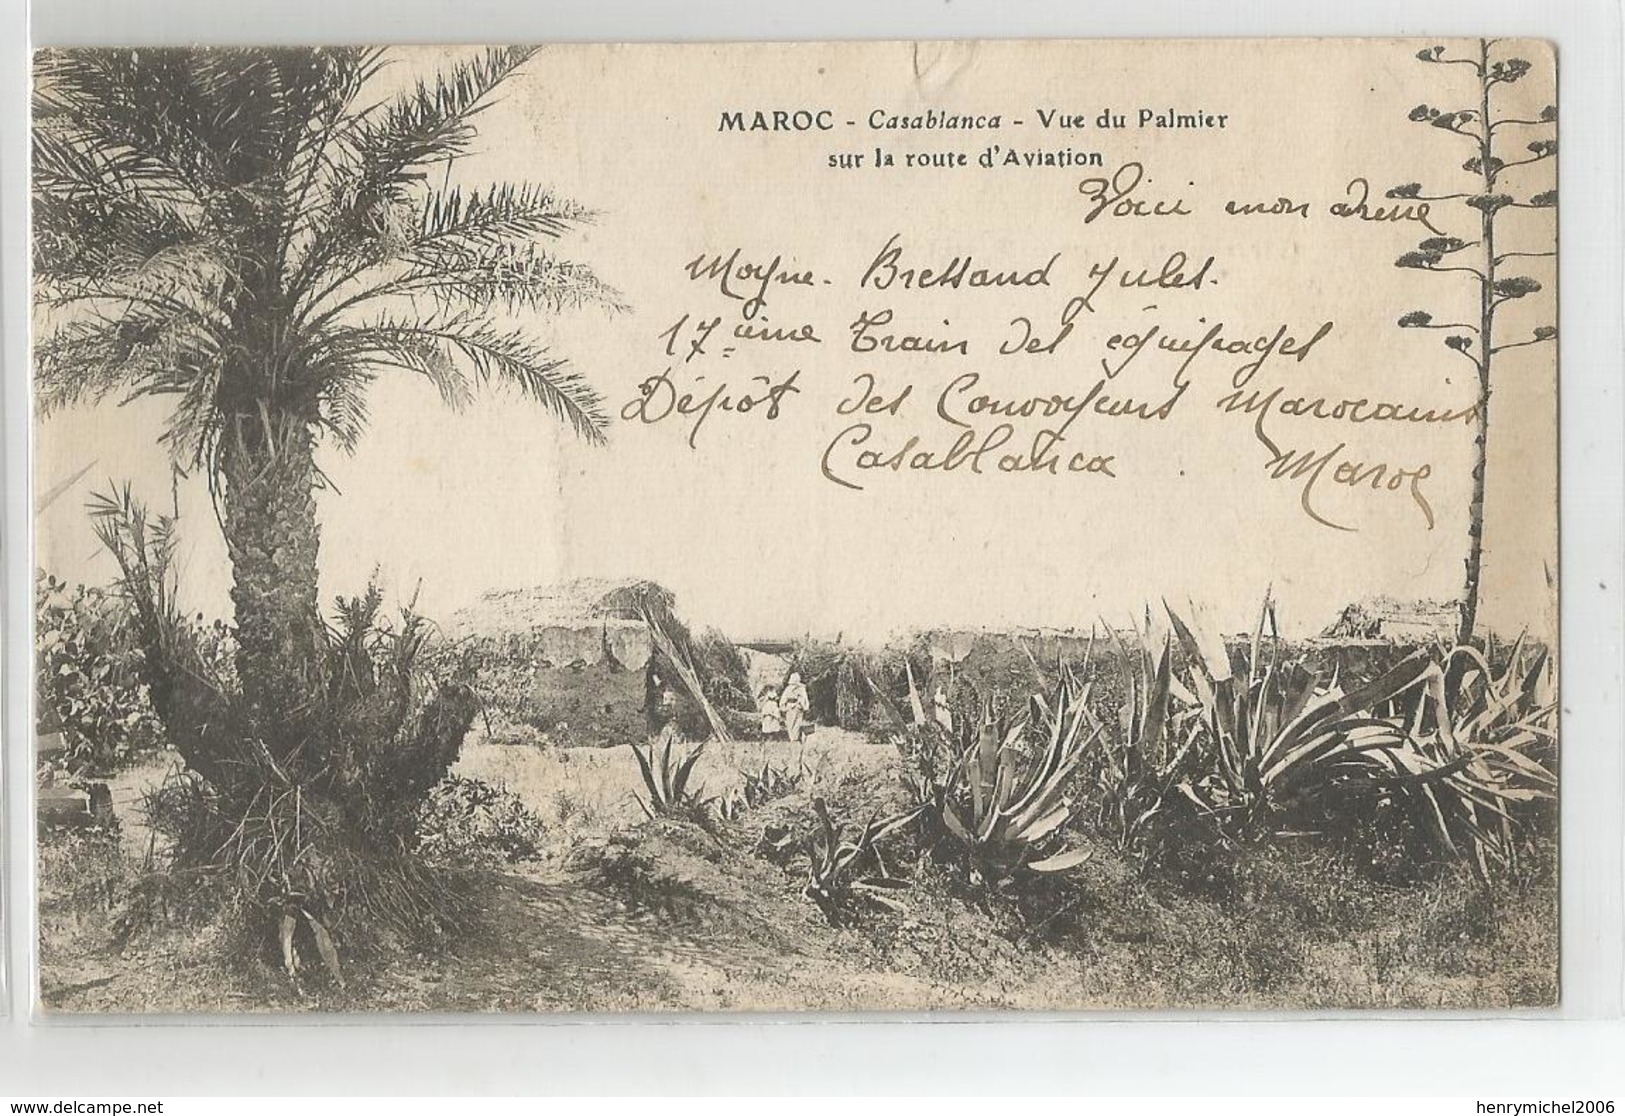 MAROC - Casablanca - Vue du Palmier
sur la route d'Aviation
Voici mon adresse
Bressand Jules.
17 ème Train des équipages
Dépôt des Convoyeurs Marocains
Casablanca . Maroc
www.delcampe.net
henrymichel2006